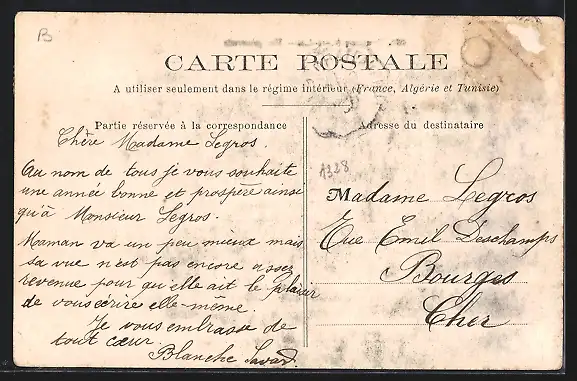 B
CARTE POSTALE
A utiliser seulement dans le régime intérieur (France, Algérie et Tunisie)
Partie réservée à la correspondance
Chère Madame Legros.
Au nom de tous je vous souhaite
une année bonne et prospère ainsi
qu'à Monsieur Legros.
Maman va un peu mieux mais
sa vue n'est pas encore assez
revenue pour qu'elle ait le plaisir
de vous écrire elle-même.
Je vous embrasse de
tout cœur.
Blanche
Adresse du destinataire
1328
Madame Legros
Rue Emil Deschamps
Bourges
Cher